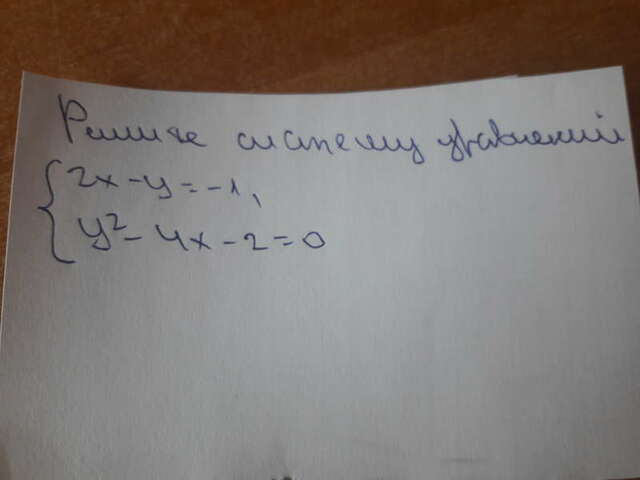 Решите систему уравнений
{2x-y=-1,
y²-4x-2=0